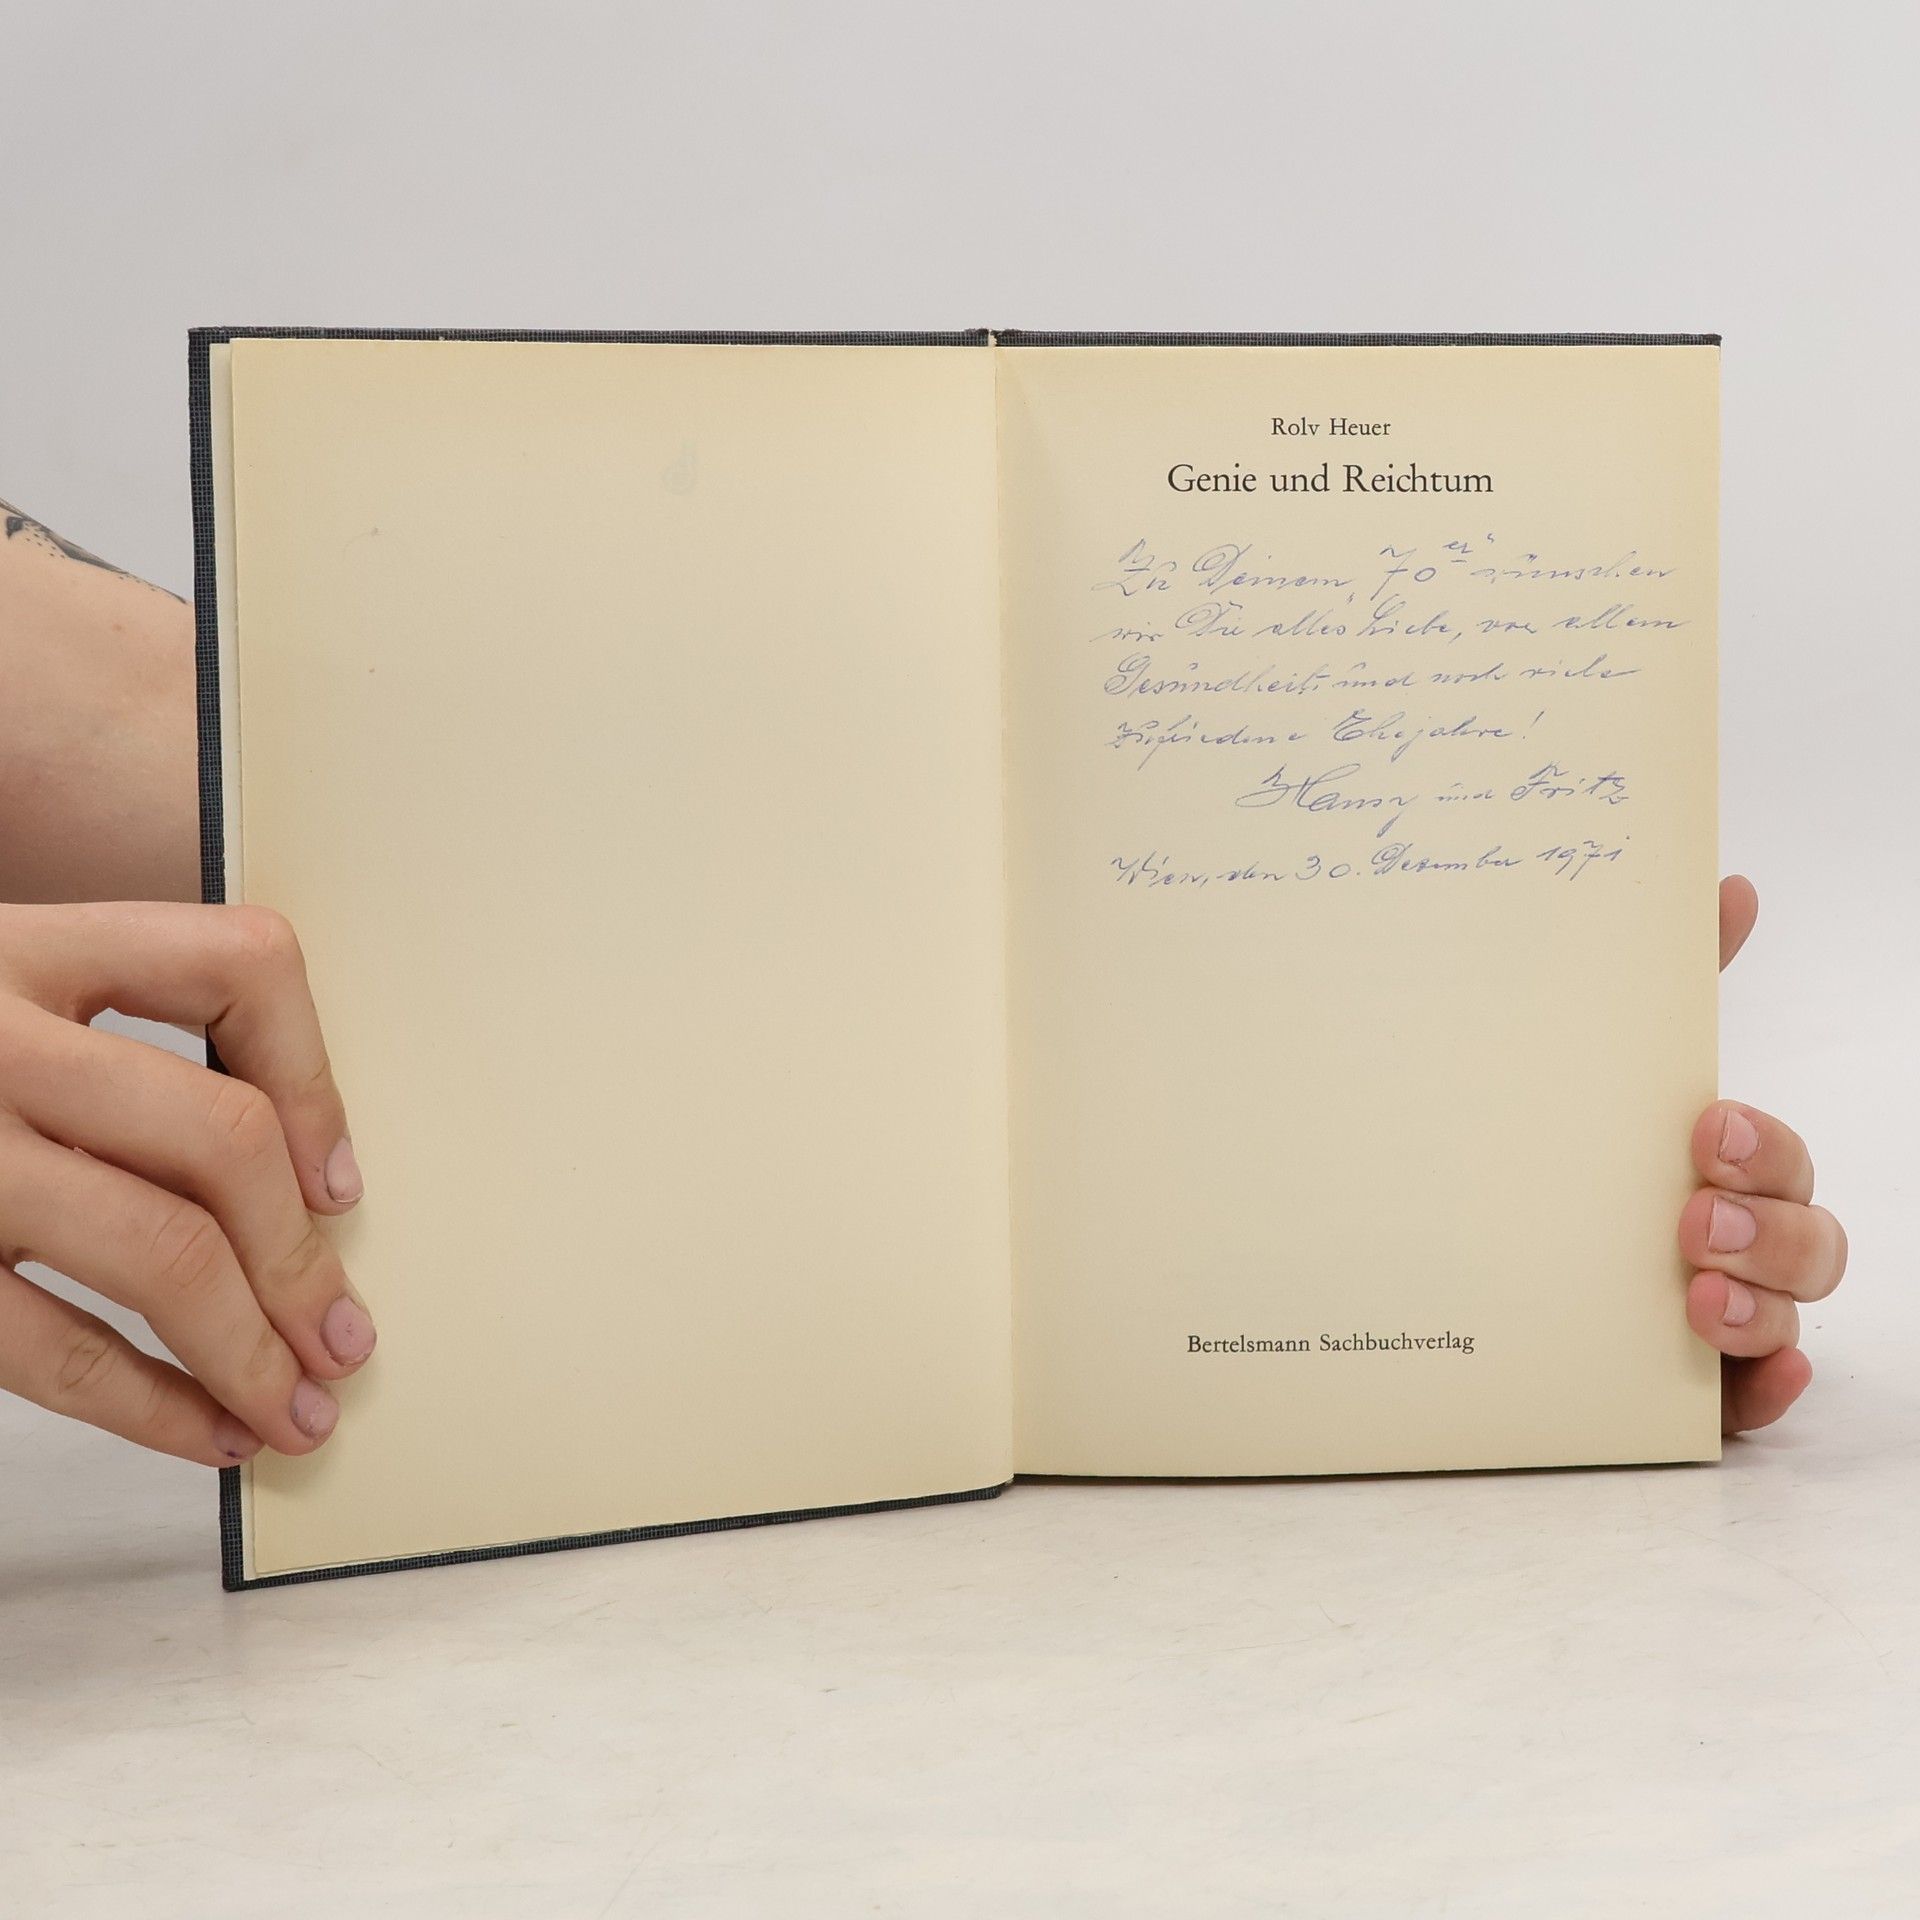 Rolv Heuer
Genie und Reichtum
Zu Deinem „70er“ wünschen
wir Dir alles Liebe, vor allem
Gesundheit und noch viele
zufriedene Ehejahre!
und Fritz
Wien, den 30. Dezember 1971
Bertelsmann Sachbuchverlag